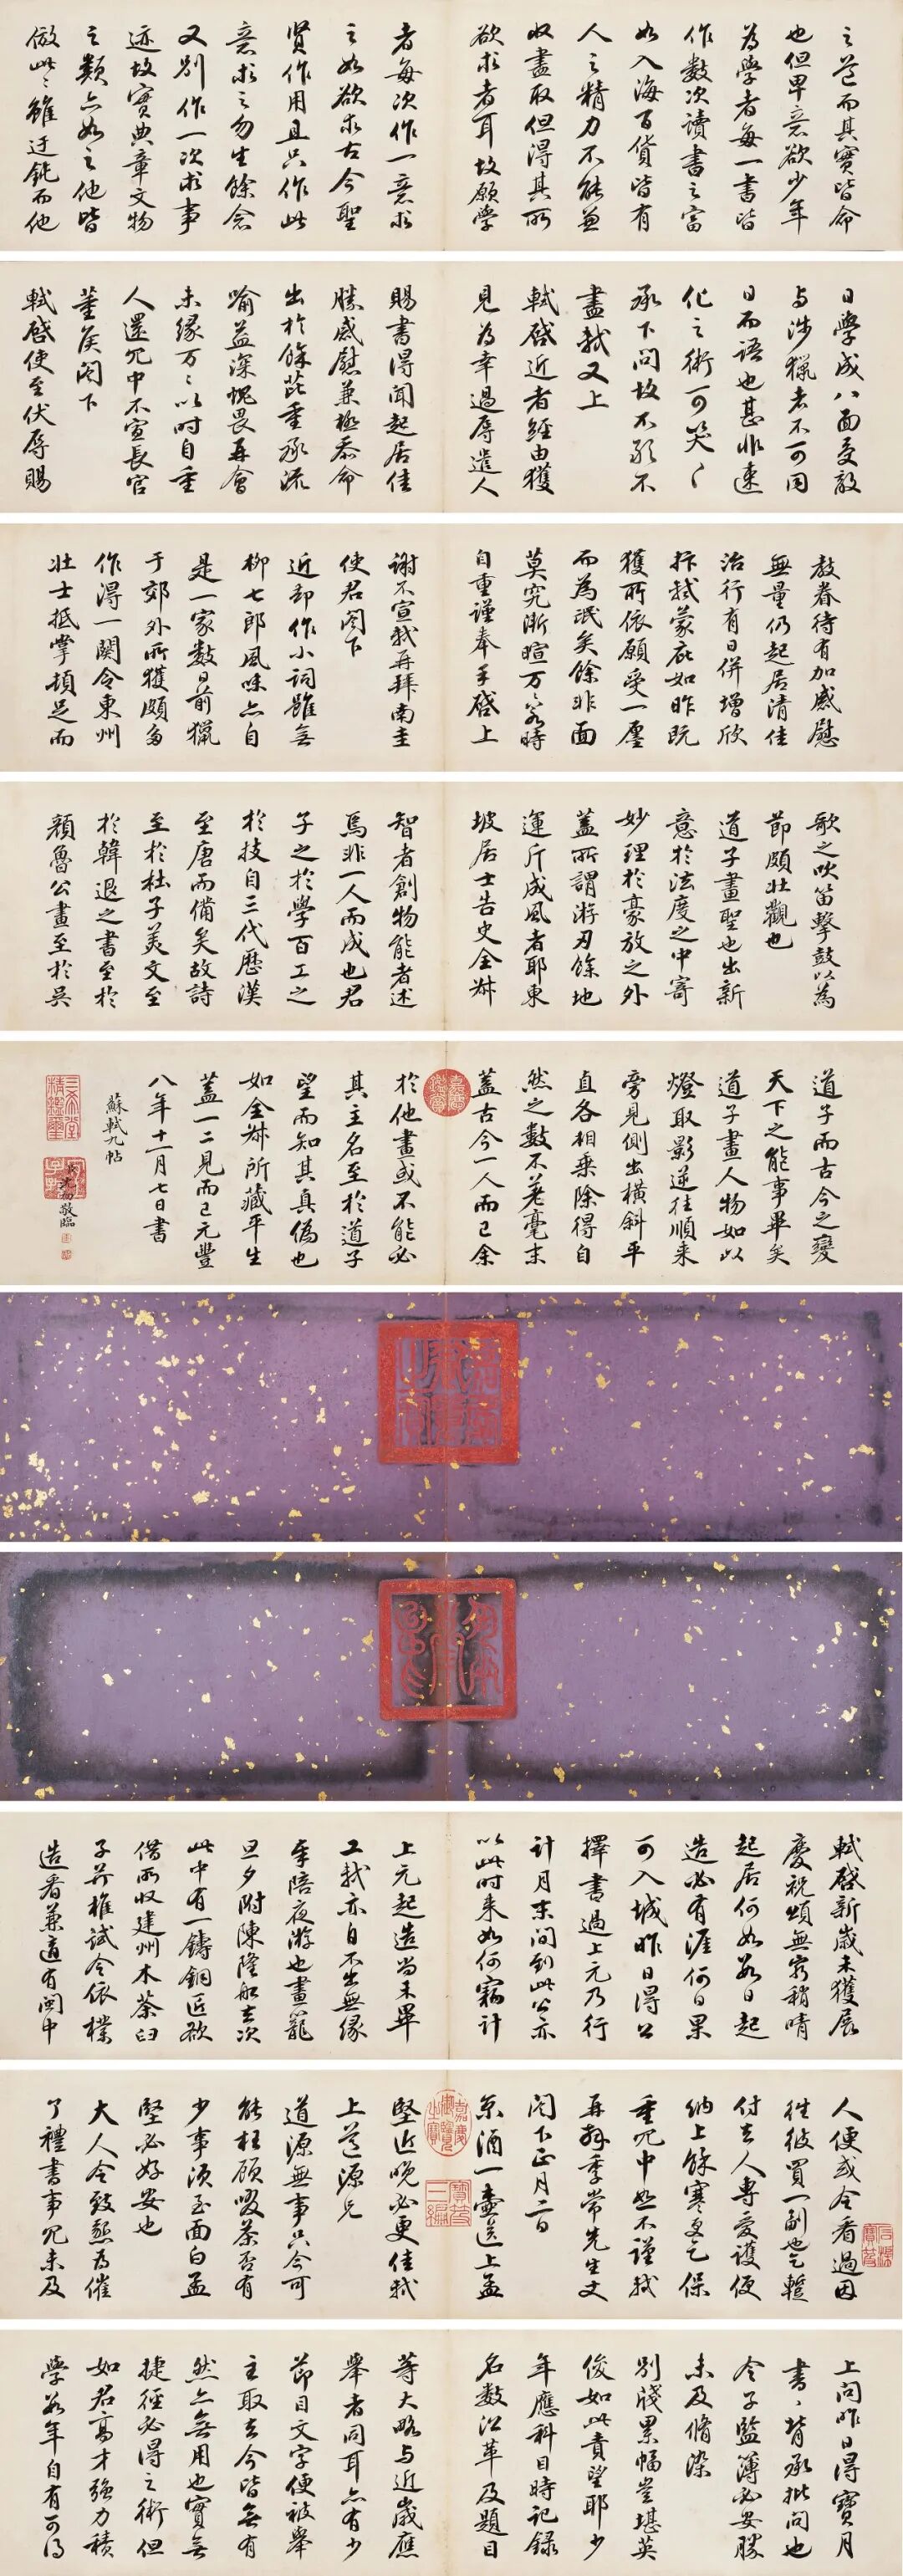 之道而其實皆命
也但卑意欲少年
為學者每一書皆
作數次讀書之富
如入海百貨皆有
人之精力不能兼
收盡取但得其所
欲求者耳故願學
者每次作一意求
之如欲求古今聖
賢作用且只作此
意求之勿生餘念
又別作一次求事
迹故實典章文物
之類亦如之他皆
倣此〻雖迂鈍而他
日學成八面受敵
与涉獵者不可同
日而語也甚非速
化之術可笑〻
承下問故不敢不
盡軾又上
軾啓近者經由獲
見為幸過辱遣人
賜書得聞起居佳
勝感慰兼極忝命
出於餘芘重承流
喻益深愧畏再會
未緣万〻以時自重
人還冗中不宣長官
董侯閣下
軾啓使至伏辱賜
教眷待有加感慰
無量仍起居清佳
治行有日併增欣
抃軾蒙庇如昨既
獲所依願受一廛
而為氓矣餘非面
莫究漸暄万〻若時
自重謹奉手啓上
謝不宣軾再拜南圭
使君閣下
近却作小詞雖無
柳七郎風味亦自
是一家數日前獵
于郊外所獲頗多
作得一闋令東州
壯士抵掌頓足而
歌之吹笛擊鼓以為
節頗壯觀也
道子畫聖也出新
意於法度之中寄
妙理於豪放之外
蓋所謂游刃餘地
運斤成風者耶東
坡居士告史全叔
智者創物能者述
焉非一人而成也君
子之於學百工之
於技自三代歷漢
至唐而備矣故詩
至於杜子美文至
於韓退之書至於
顏魯公畫至於吳
道子而古今之變
天下之能事畢矣
道子畫人物如以
燈取影逆往順來
旁見側出橫斜平
直各相乘除得自
然之數不差毫末
蓋古今一人而已余
嘉慶鑑賞
於他畫或不能必
其主名至於道子
望而知其真偽也
如全叔所藏平生
蓋一二見而已元豐
八年十一月七日書
蘇軾九帖
臣沈初敬臨
三希堂精鑑璽
宜子孫
軾啓新歲未獲展
慶祝頌無窮稍晴
起居何如數日起
造必有涯何日果
可入城昨日得公
擇書過上元乃行
計月末間到此公亦
以此時來如何竊計
上元起造尚未畢
工軾亦自不出無緣
奉陪夜游也畫籠
旦夕附陳隆船去次
此中有一鑄銅匠欲
借所收建州木茶臼
子并椎試令依樸
造看兼適有閩中
人便或令看過因
往彼買一副也乞蹔
付去人專愛護便
納上餘寒更乞保
重冗中恕不謹軾
再拜季常先生丈
閣下正月二日
京酒一壺送上孟
嘉慶御覽之寶
寶笈三編
石渠寶笈
堅近晚必更佳軾
上道源兄
道源無事只今可
能枉顧啜茶否有
少事須至面白孟
堅必好安也
大人令致懇為催
了禮書事冗未及
上問昨日得寶月
書〻背承批問也
令子監簿必安勝
未及脩染
別牋累幅豈堪英
俊如此責望耶少
年應科目時記錄
名數沿革及題目
等大略与近歲應
舉者同耳亦有少
節目文字便被舉
主取去今皆無有
然亦無用也實無
捷徑必得之術但
如君高才強力積
學數年自有可得